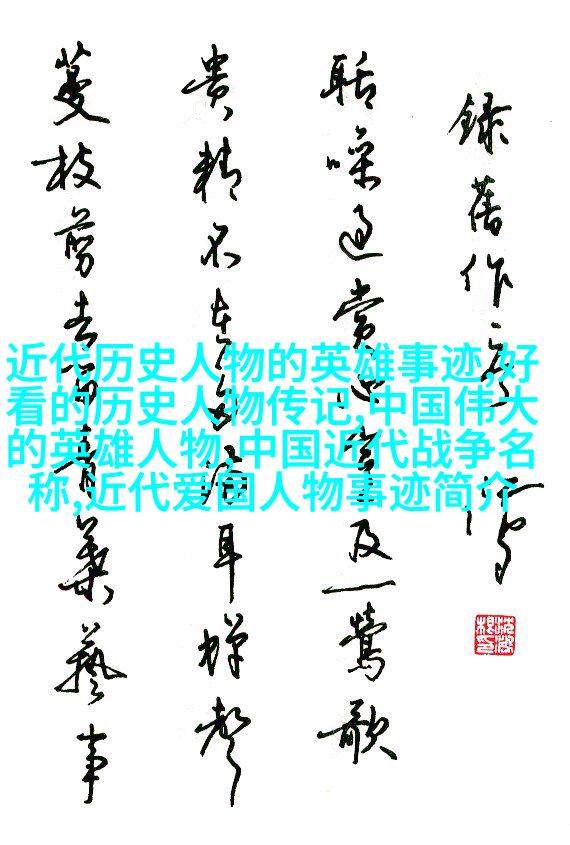 近代历史人物的英雄事迹,好
看的历史人物传记,中国伟大
的英雄人物,中国近代战争名
称,近代爱国人物事迹简介
蔓枝剪去青葉藝事
貴精不在多耳蟬聲
聒噪過賞及一鶯歌
錄舊作